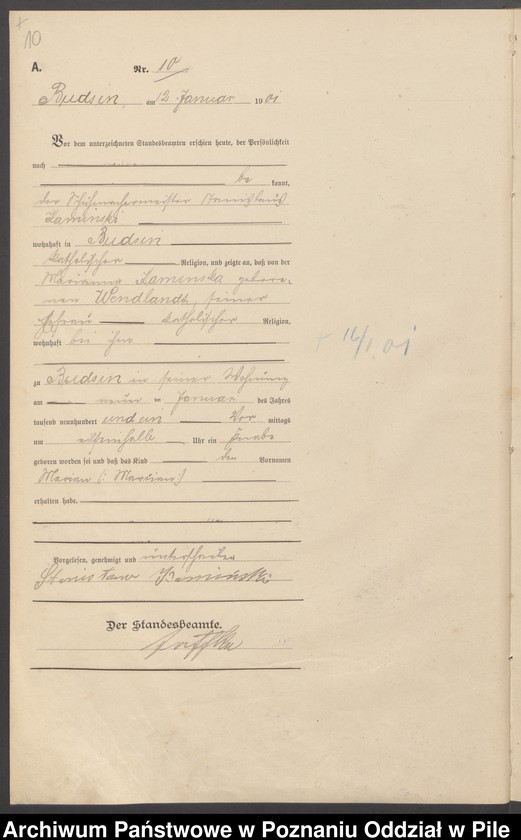 10
A. Nr. 10
Budsin, am 12 Januar 1901
Vor dem unterzeichneten Standesbeamten erschien heute, der Persönlichkeit
nach
be kannt,
der Schuhmachermeister Stanislaus
Kaminski
wohnhaft in Budsin
katholischer Religion, und zeigte an, daß von der
Marianna Kaminska gebore-
nen Wendlandt, seiner
Ehefrau katholischer Religion,
wohnhaft bei ihm
zu Budsin in seiner Wohnung
am neun ten Januar des Jahres
tausend neunhundert und ein Vor mittags
um Uhr ein Knabe
geboren worden sei und daß das Kind den Vornamen
Marian (: Marian :)
erhalten habe.
Vorgelesen, genehmigt und unterschrieben
Stanisław Kamiński
Der Standesbeamte.
Archiwum Państwowe w Poznaniu Oddział w Pile